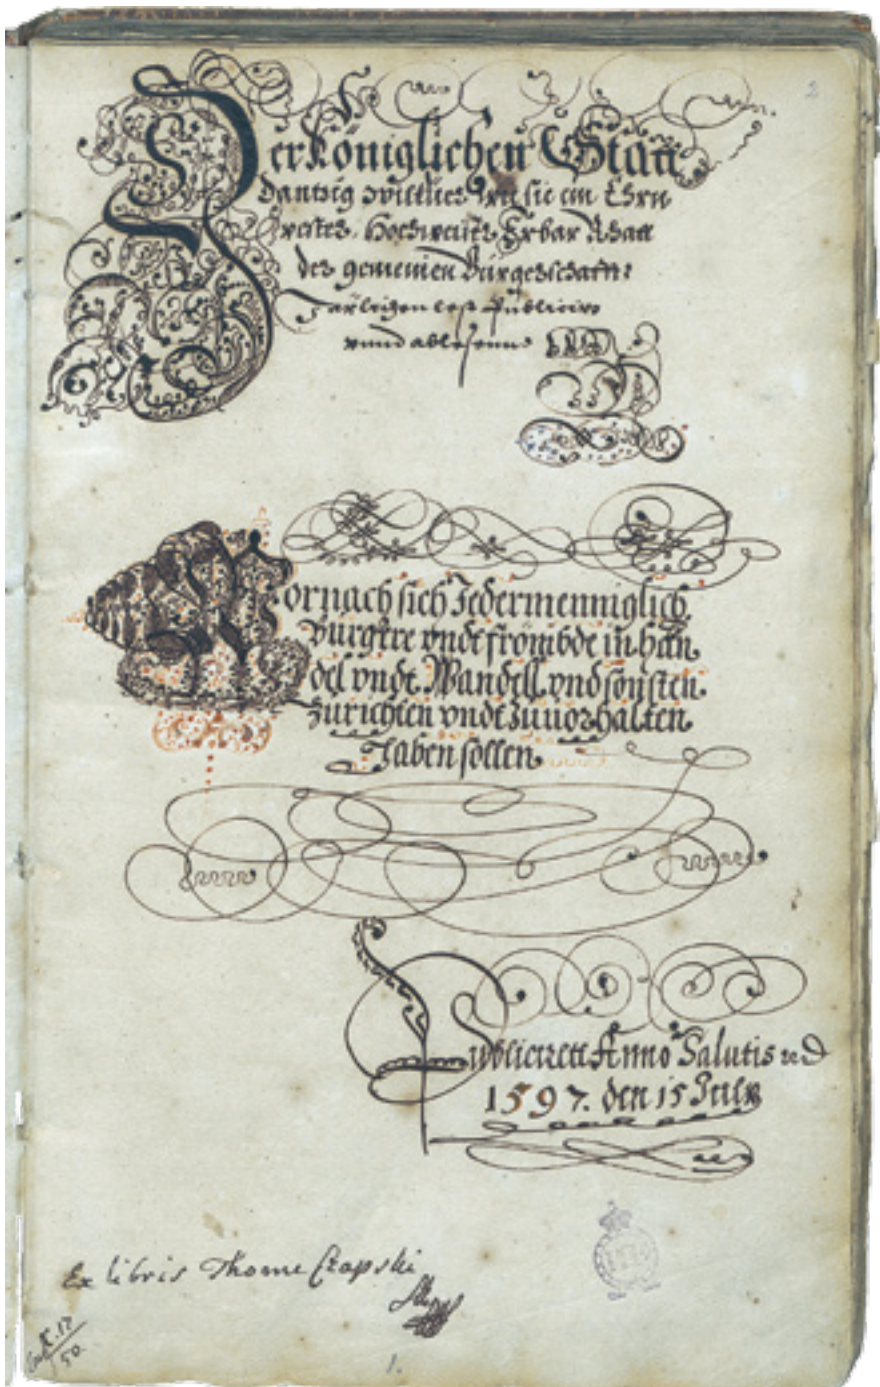 2
Der Königlichen Statt
Dantzig willkier wie sie ein Ehrn
vester, Hochweiser Erbar Rhatt
der gemeinen Bürgerschafft
Järlichen lest Publiciren
vnnd ablesenn
Wornach sich Jedermenniglich
bürgere vndt frömbde in han
del vndt Wandell vnd sonsten
zurichten vndt zuuorhalten
haben sollen
Publicirett Anno Salutis
1597. den 15 July
Ex libris Thome Czapski
50
1.